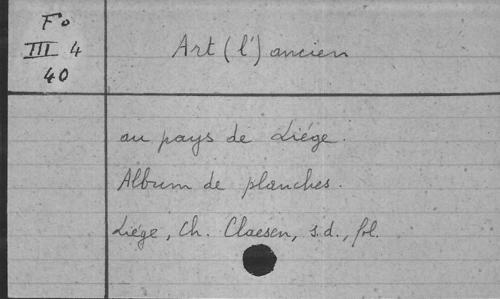 Fo
III 4
40
Art (l') ancien
au pays de Liége.
Album de planches.
Liége, Ch. Claesen, s.d., fol.